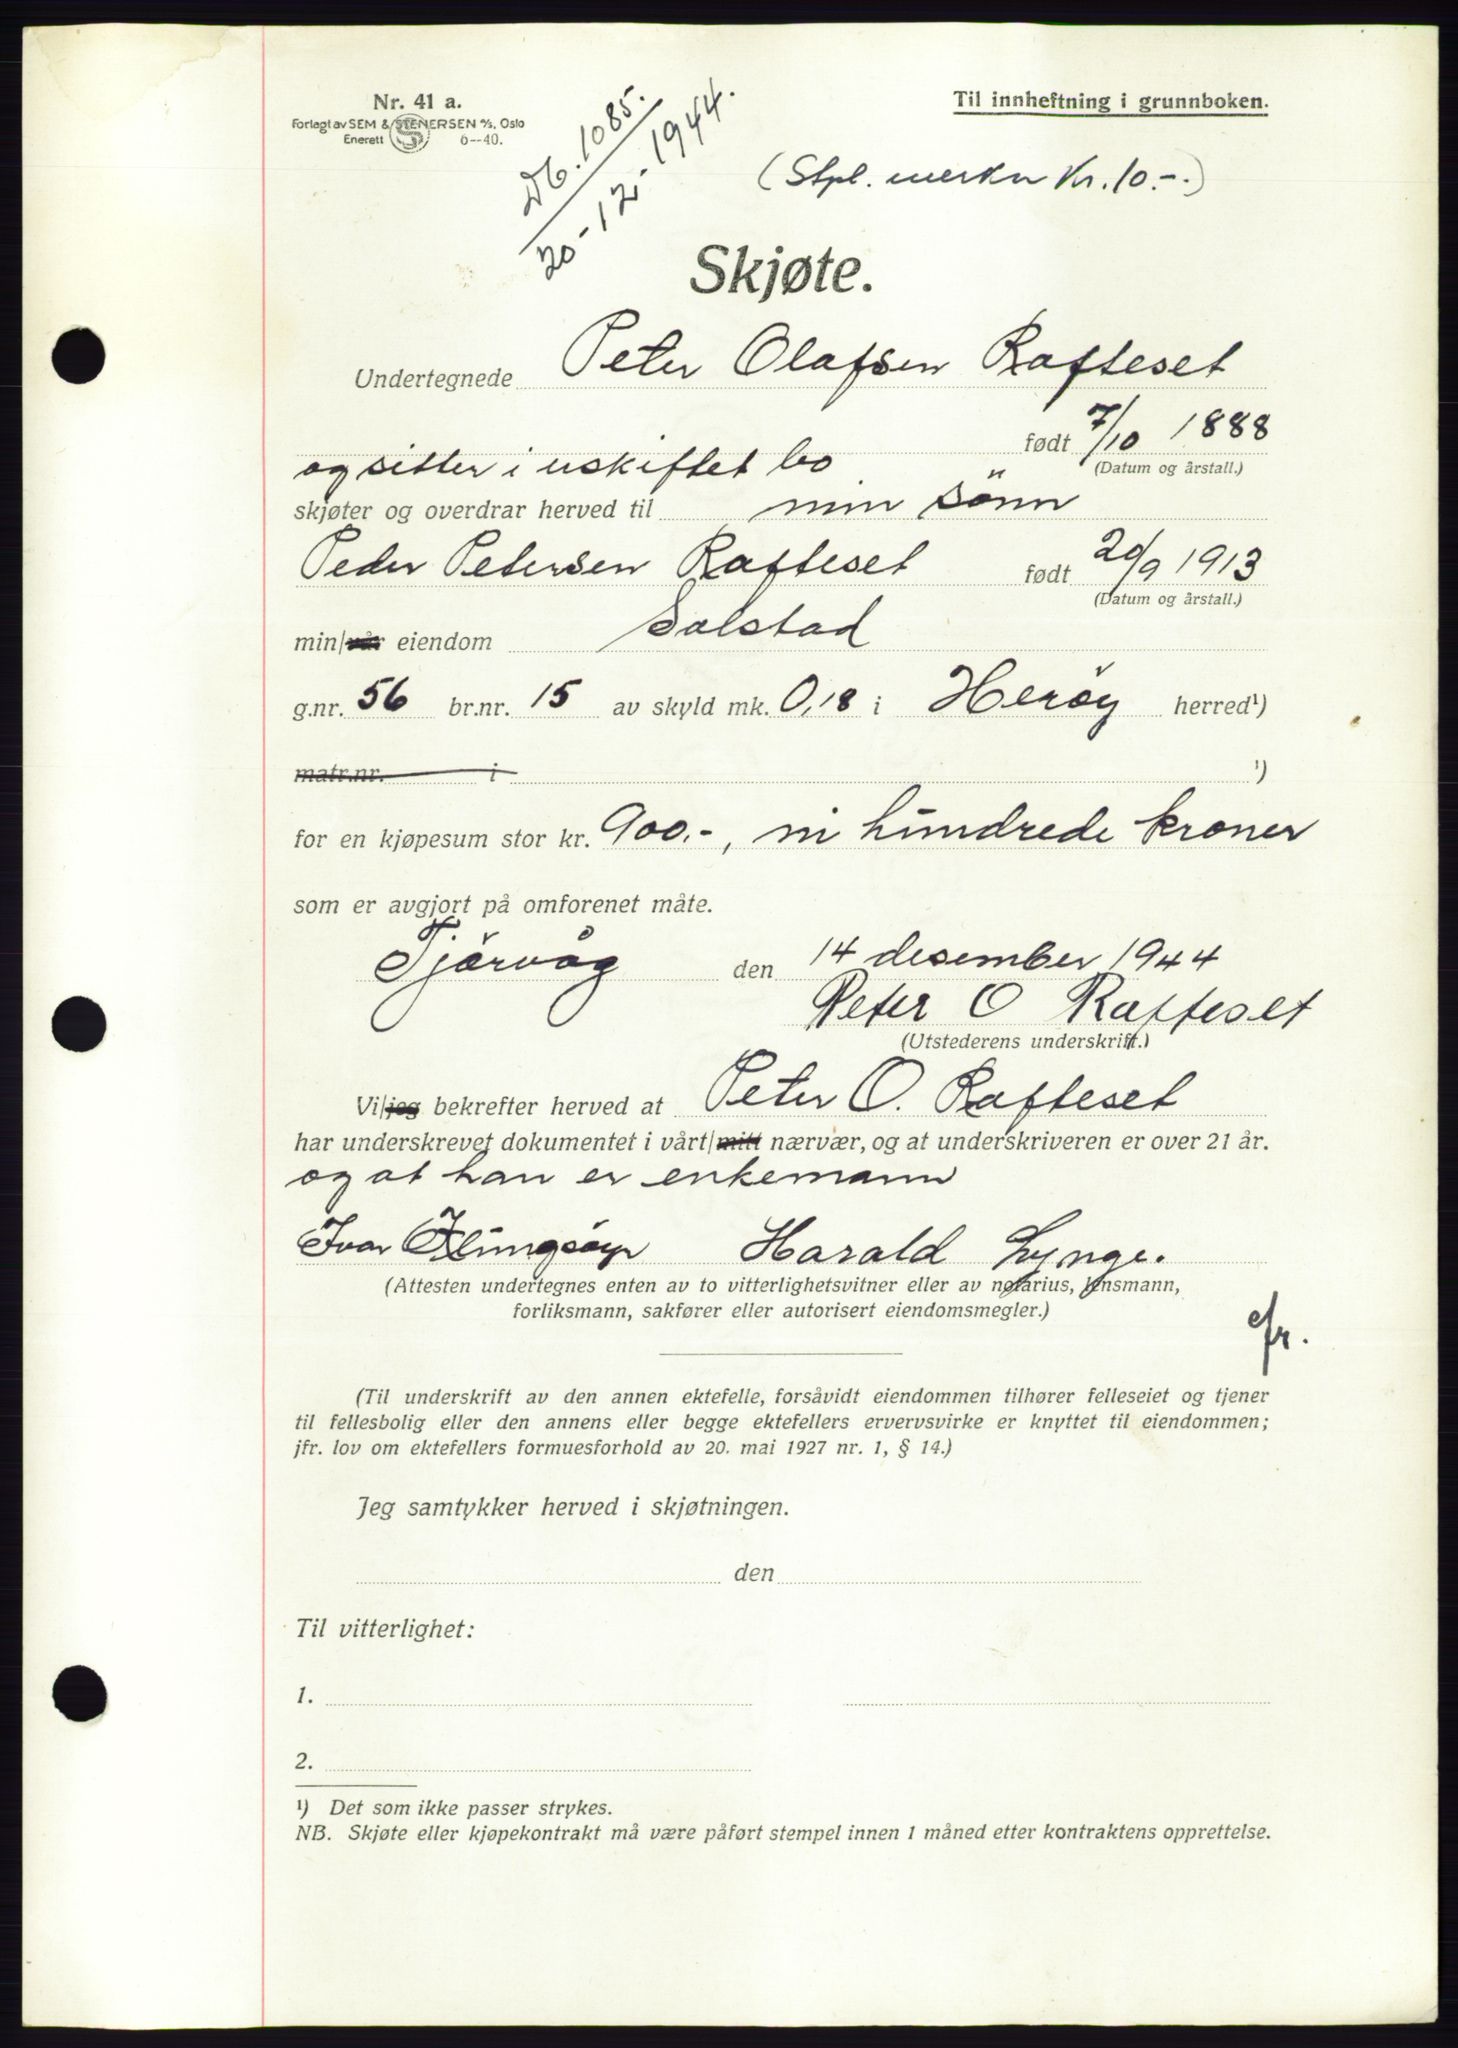 Nr. 41 a.
Forlagt av SEM & STENERSEN A/S, Oslo
Enerett S 6--40.
Db. 1085.
20-12-1944.
Til innheftning i grunnboken.
(Stpl. merker Kr. 10.-.)
Skjøte.
Undertegnede Peter Olafsen Rafteset
født 7/10 1888
og sitter i uskiftet bo (Datum og årstall.)
skjøter og overdrar herved til min sönn
Peder Petersen Rafteset født 20/9 1913
(Datum og årstall.)
min/vår eiendom Solstad
g.nr. 56 br.nr. 15 av skyld mk. 0,18 i Heröy herred¹)
matr.nr. i ¹)
for en kjøpesum stor kr. 900.-, ni hundrede kroner
som er avgjort på omforenet måte.
Tjörvåg den 14 desember 1944
Peter O Rafteset
(Utstederens underskrift.)
Vi/jeg bekrefter herved at Peter O. Rafteset
har underskrevet dokumentet i vårt/mitt nærvær, og at underskriveren er over 21 år.
og at han er enkemann
Ivar Flungsöyr Harald Lynge.
(Attesten undertegnes enten av to vitterlighetsvitner eller av notarius, lensmann,
forliksmann, sakfører eller autorisert eiendomsmegler.)
(Til underskrift av den annen ektefelle, forsåvidt eiendommen tilhører felleseiet og tjener
til fellesbolig eller den annens eller begge ektefellers ervervsvirke er knyttet til eiendommen;
jfr. lov om ektefellers formuesforhold av 20. mai 1927 nr. 1, § 14.)
Jeg samtykker herved i skjøtningen.
den
Til vitterlighet:
1.
2.
¹) Det som ikke passer strykes.
NB. Skjøte eller kjøpekontrakt må være påført stempel innen 1 måned etter kontraktens opprettelse.